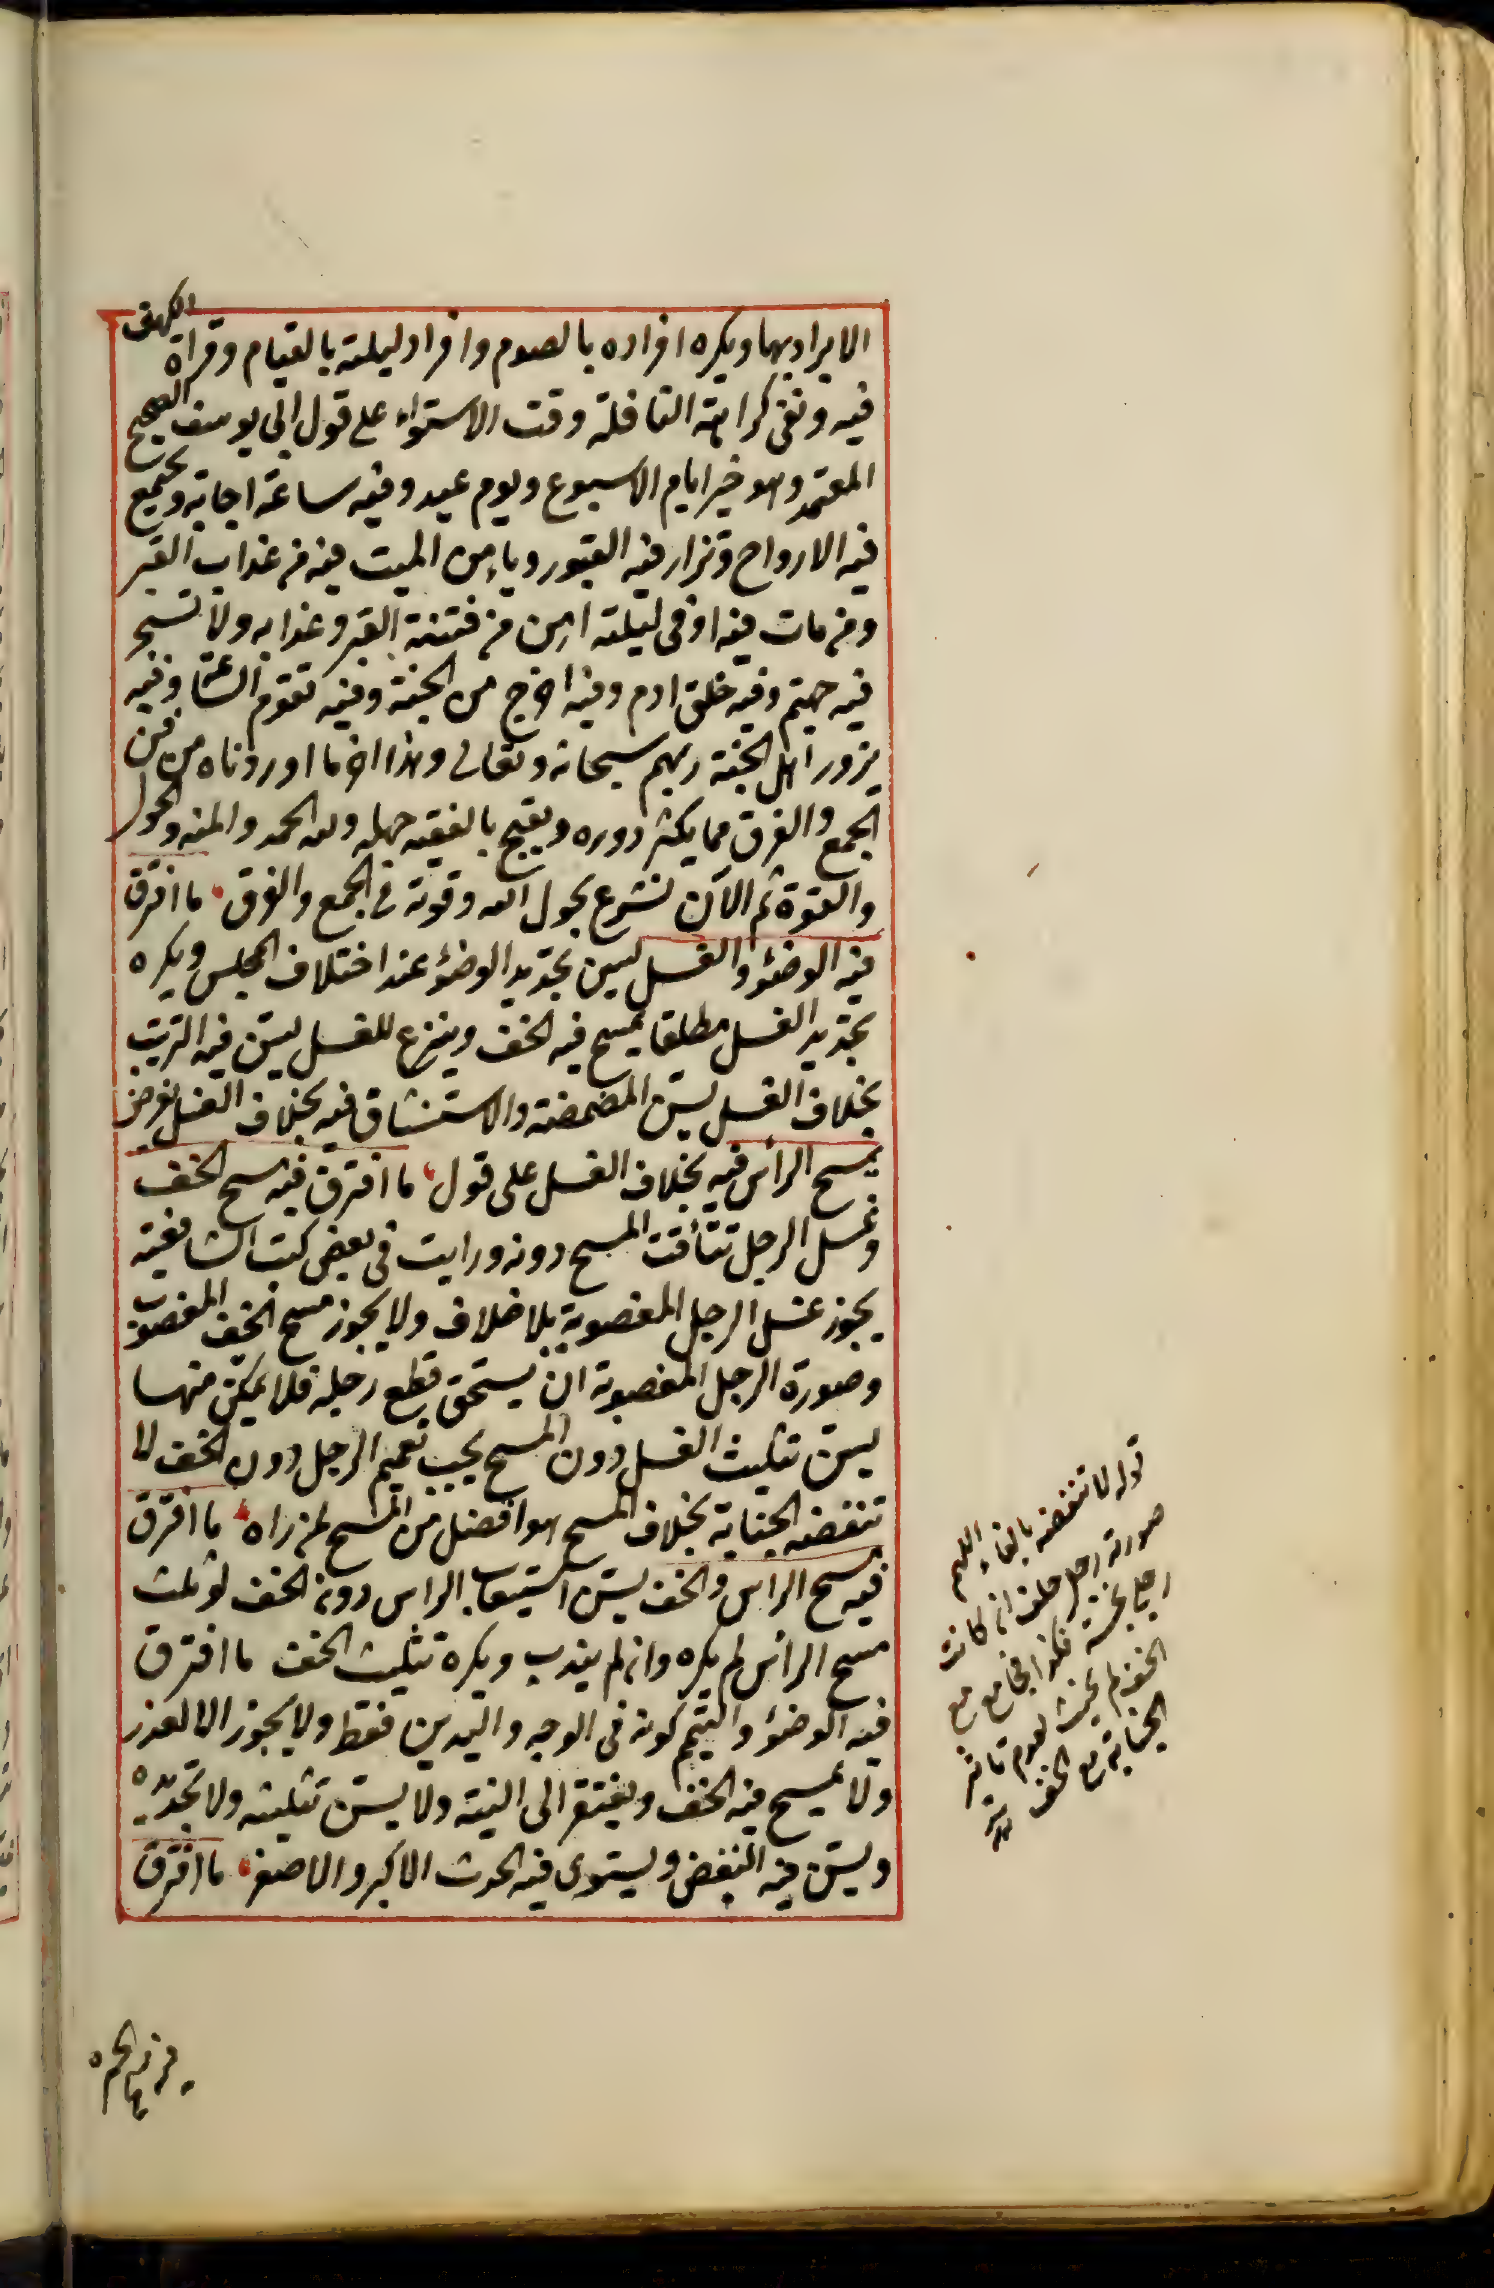 الابراد بها ويكره افراده بالصوم وافراد ليلته بالقيام وقراة الكهف
فيه ونفى كراهة النافلة وقت الاستواء على قول ابى يوسف الصحيح
المعتمد وهو خير ايام الاسبوع ويوم عيد وفيه ساعة اجابة وتجتمع
فيه الارواح وتزار فيه القبور ويأمن الميت فيه من عذاب القبر
ومن مات فيه او فى ليلته امن من فتنة القبر وعذابه ولا تسجر
فيه جهنم وفيه خلق ادم وفيه اخرج من الجنة وفيه تقوم الساعة وفيه
يزور اهل الجنة ربهم سبحانه وتعالى وهذا اخر ما اوردناه من فن
الجمع والفرق مما يكثر دوره ويقبح بالفقيه جهله ولله الحمد والمنه والحول
والقوة ثم الآن نشرع بحول الله وقوته فى الجمع والفرق ما افترق
فيه الوضؤ والغسل يسن تجديد الوضؤ عند اختلاف المجلس ويكره
تجديد الغسل مطلقا يمسح فيه الخف وينزع للغسل يسن فيه الترتيب
بخلاف الغسل يسن المضمضة والاستنشاق فيه بخلاف الغسل يفرض
يمسح الرأس فيه بخلاف الغسل على قول ما افترق فيه مسح الخف
وغسل الرجل تتأقت المسح دونه ورايت فى بعض كتب الشافعية
يجوز غسل الرجل المغصوبة بلا خلاف ولا يجوز مسح الخف المغصوب
وصورة الرجل المغصوبة ان يستحق قطع رجله فلا يمكن منها
يسن تثليث الغسل دون المسح يجب تعميم الرجل دون الخف لا
تنقضه الجنابة بخلاف المسح هو افضل من المسح لمن راه ما افترق
فيه مسح الراس والخف يسن استيعاب الراس دون الخف لو ثلث
مسح الرأس لم يكره وان لم يندب ويكره تثليث الخف ما افترق
فيه الوضؤ والتيمم كونه فى الوجه واليدين فقط ولا يجوز الا لعذر
ولا يمسح فيه الخف ويفتقر الى النية ولا يسن تثليثه ولا تجديده
ويسن فيه النفض ويستوى فيه الحدث الاكبر والاصغر ما افترق
قوله لا تنقضه بالفاء اللهم
صورته رجل حلف ان كانت
رجل نجسة فكذا فجامع مع
الخف لم يحنث لعدم تاثير
الجنابة مع الخف